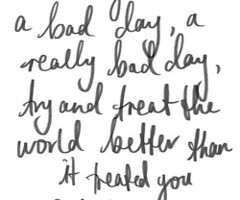 a bad day, a
really bad day,
try and treat the
world better than
it treated you